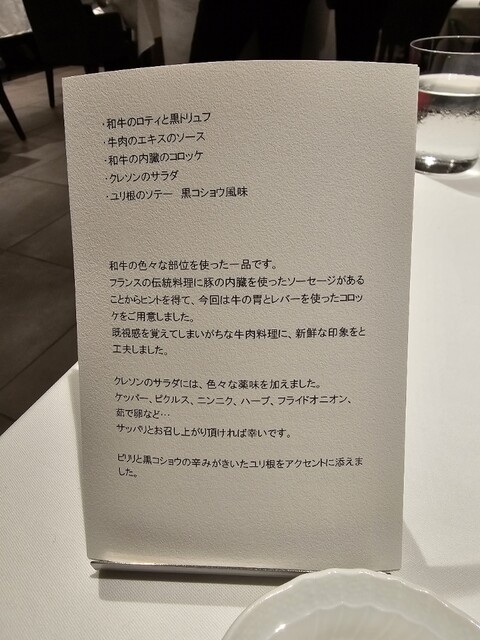 ・和牛のロティと黒トリュフ
・牛肉のエキスのソース
・和牛の内臓のコロッケ
・クレソンのサラダ
・ユリ根のソテー　黒コショウ風味
和牛の色々な部位を使った一品です。
フランスの伝統料理に豚の内臓を使ったソーセージがある
ことからヒントを得て、今回は牛の胃とレバーを使ったコロッ
ケをご用意しました。
既視感を覚えてしまいがちな牛肉料理に、新鮮な印象をと
工夫しました。
クレソンのサラダには、色々な薬味を加えました。
ケッパー、ピクルス、ニンニク、ハーブ、フライドオニオン、
茹で卵など…
サッパリとお召し上がり頂ければ幸いです。
ピリリと黒コショウの辛みがきいたユリ根をアクセントに添えま
した。